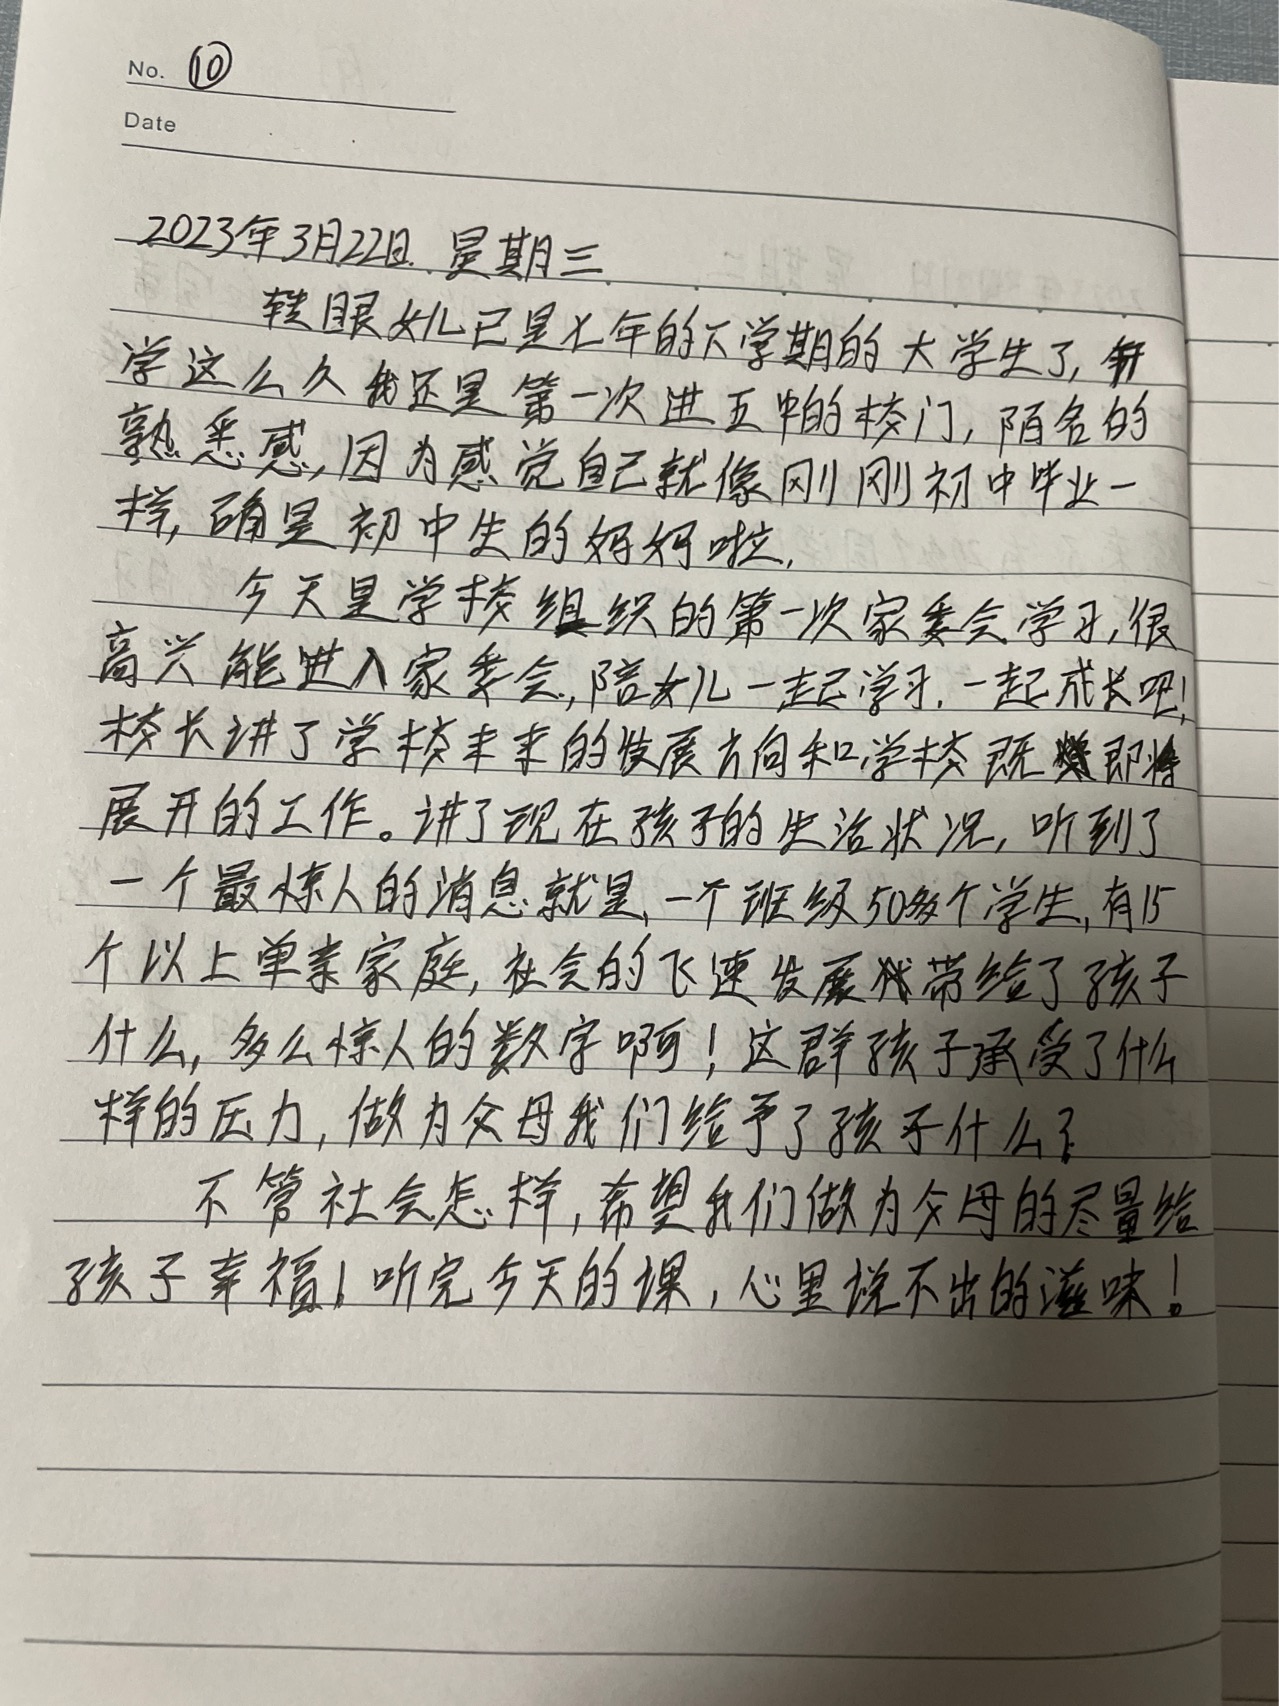 No. ⑩
Date
2023年3月22日. 星期三
转眼女儿已是七年的下学期的大学生了, 开
学这么久我还是第一次进五中的校门, 陌名的
熟悉感, 因为感觉自己就像刚刚初中毕业一
样, 确是初中生的妈妈啦.
今天是学校组织的第一次家委会学习, 很
高兴能进入家委会, 陪女儿一起学习. 一起成长吧!
校长讲了学校未来的发展方向和学校既即将
展开的工作。讲了现在孩子的生活状况, 听到了
一个最惊人的消息就是, 一个班级50多个学生, 有15
个以上单亲家庭, 社会的飞速发展带给了孩子
什么, 多么惊人的数字啊! 这群孩子承受了什么
样的压力, 做为父母我们给予了孩子什么?
不管社会怎样, 希望我们做为父母的尽量给
孩子幸福! 听完今天的课, 心里说不出的滋味!